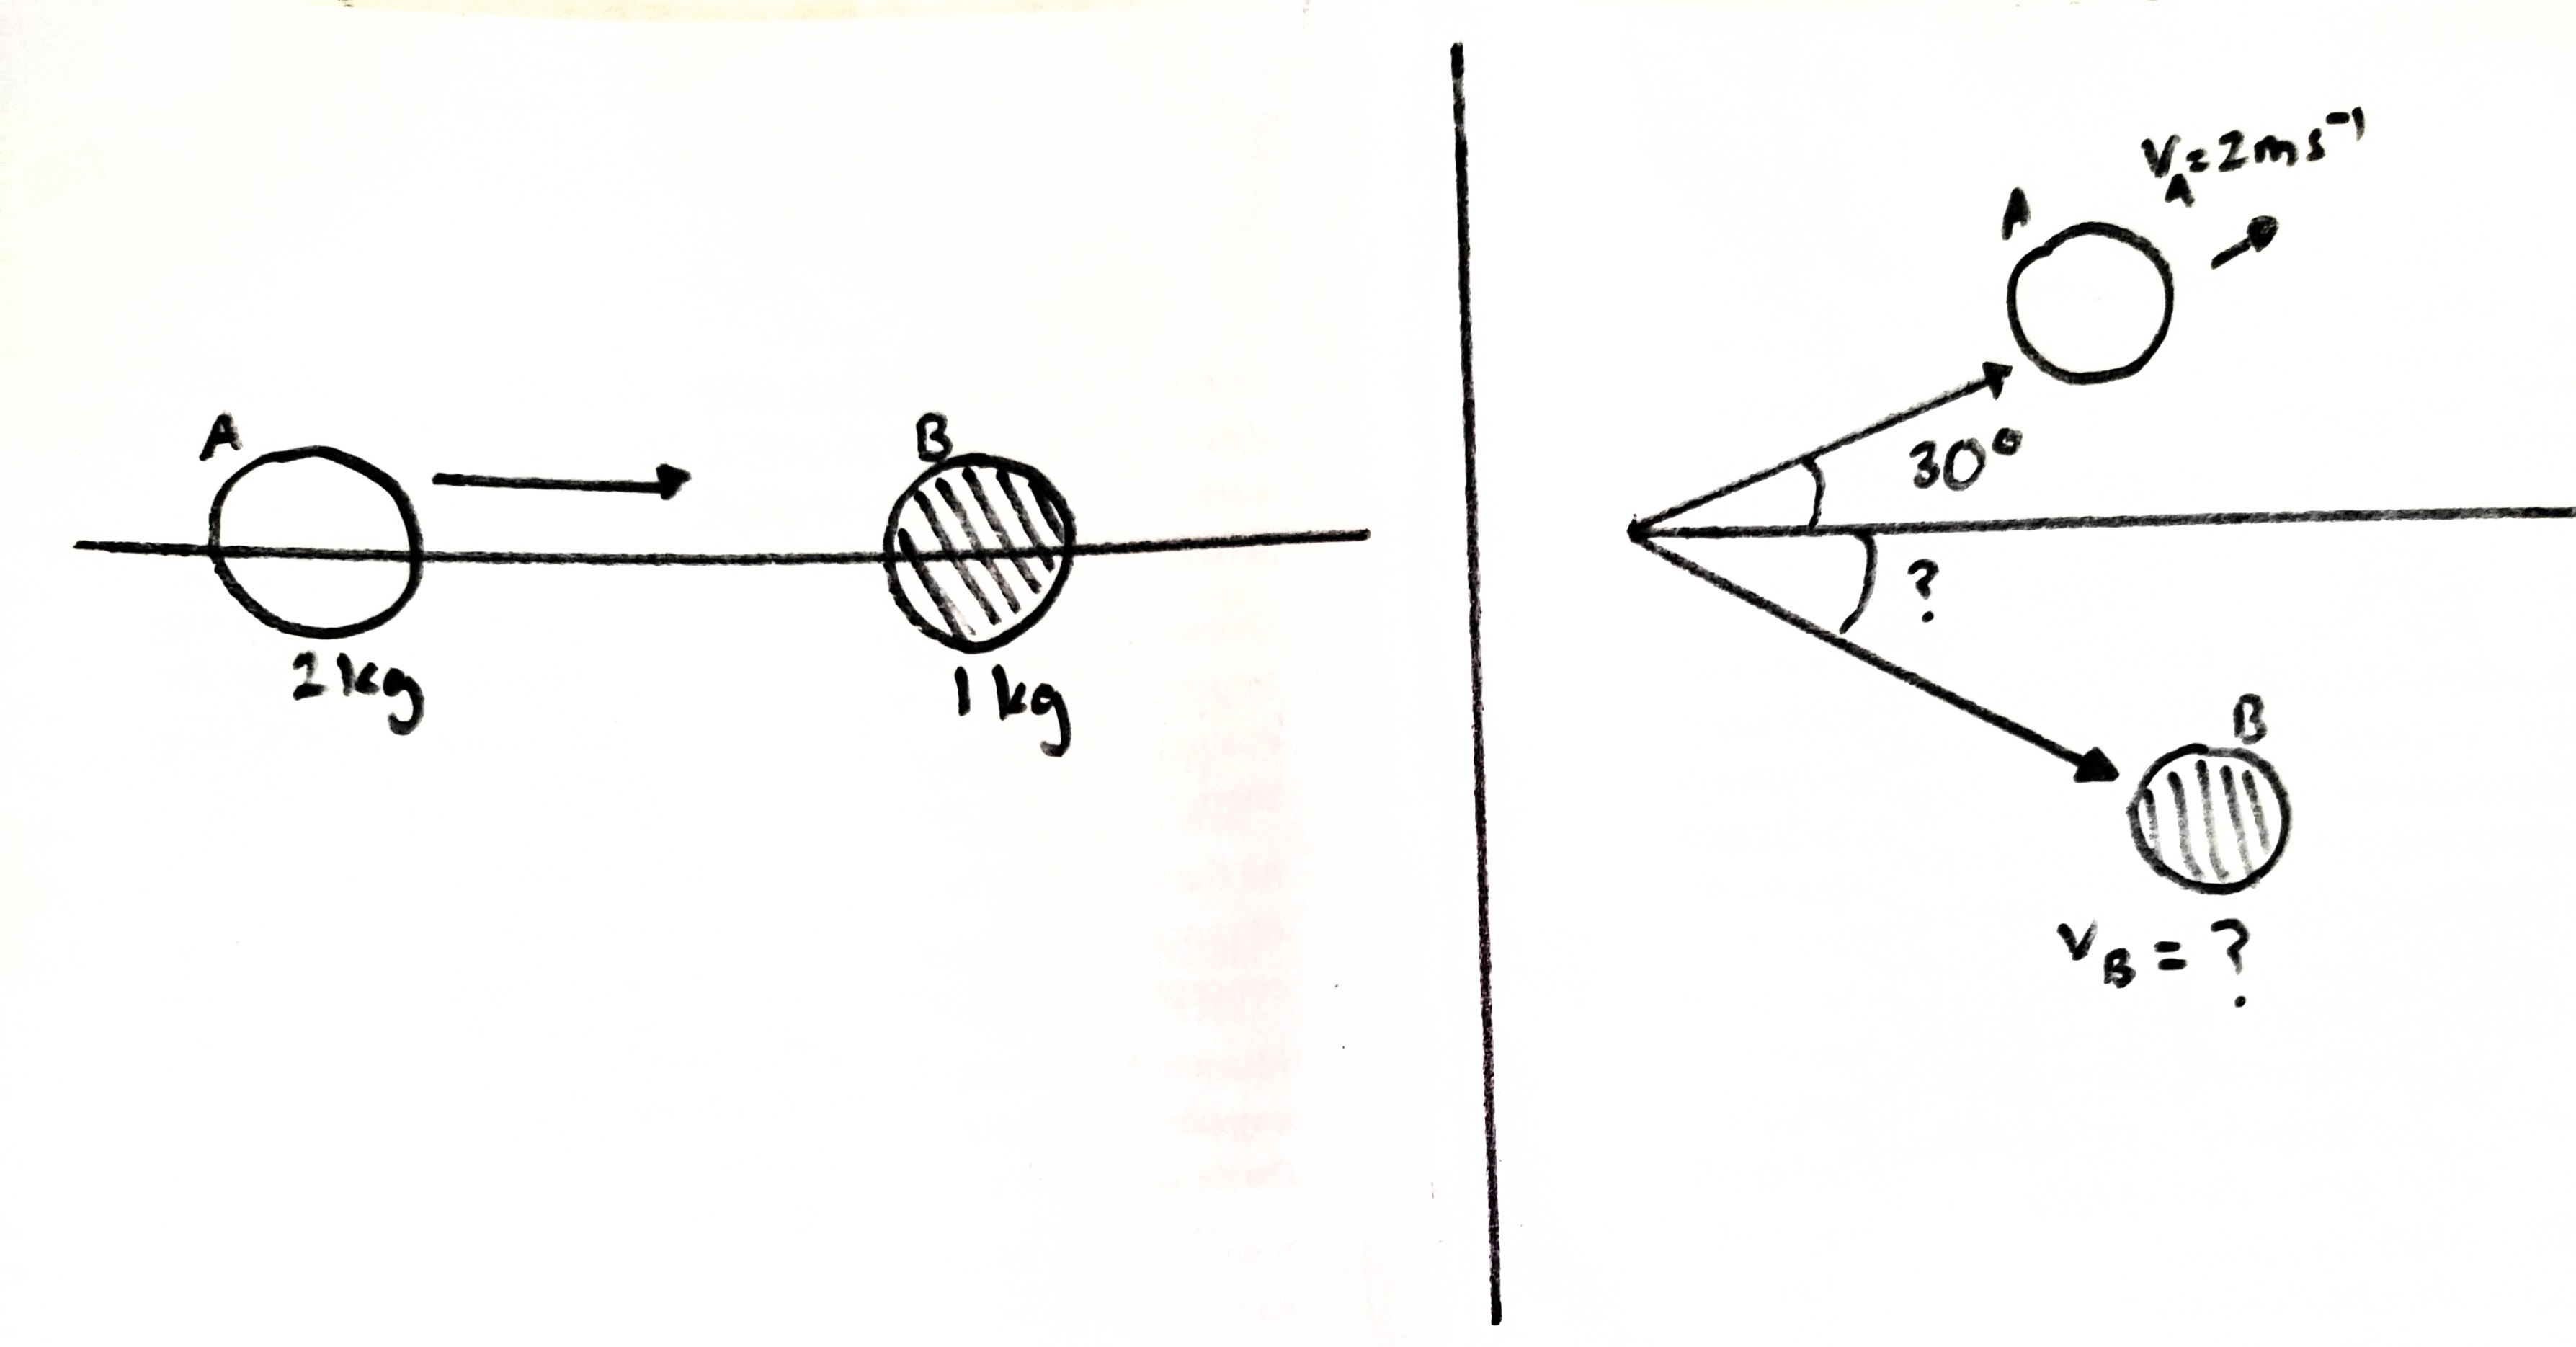 A
B
2kg
1kg
V_A = 2ms⁻¹
A
30°
?
B
V_B = ?